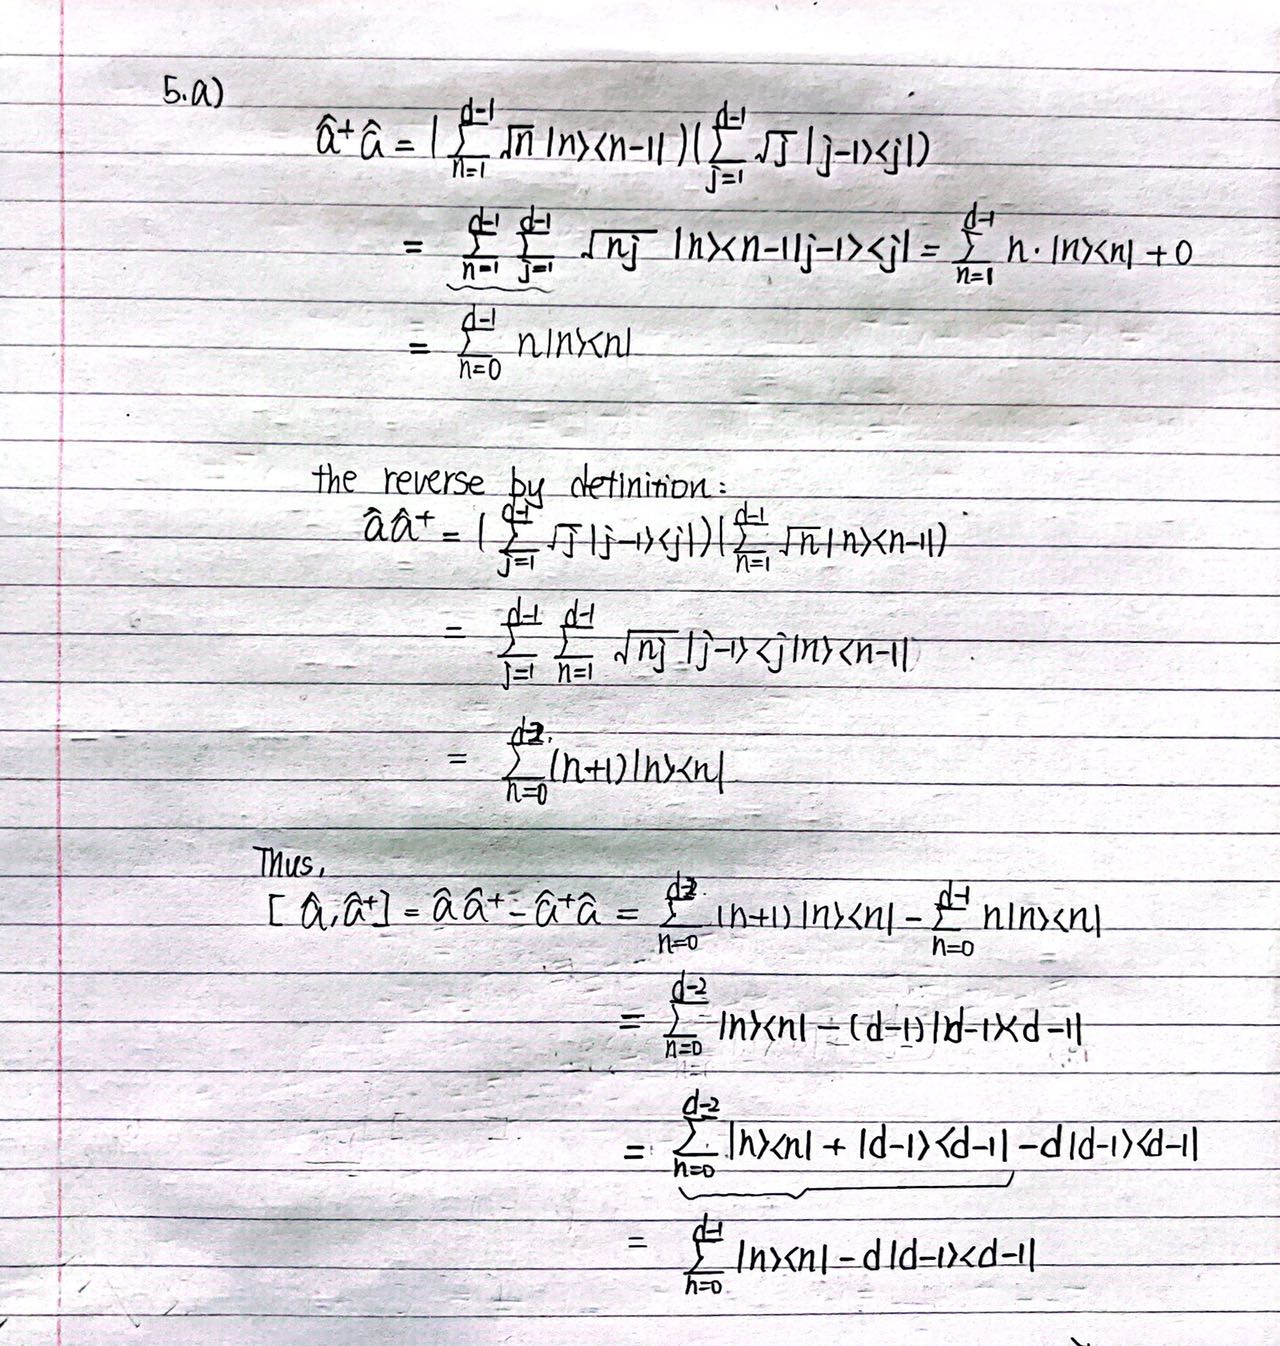 5.a)
â⁺â = (∑_{n=1}^{d-1} √n |n><n-1|)(∑_{j=1}^{d-1} √j |j-1><j|)
= ∑_{n=1}^{d-1} ∑_{j=1}^{d-1} √nj |n><n-1|j-1><j| = ∑_{n=1}^{d-1} n·|n><n| + 0
= ∑_{n=0}^{d-1} n|n><n|
the reverse by definition:
ââ⁺ = (∑_{j=1}^{d-1} √j |j-1><j|)(∑_{n=1}^{d-1} √n |n><n-1|)
= ∑_{j=1}^{d-1} ∑_{n=1}^{d-1} √nj |j-1><j|n><n-1|
= ∑_{n=0}^{d-2} (n+1)|n><n|
Thus,
[â,â⁺] = ââ⁺ - â⁺â = ∑_{n=0}^{d-2} (n+1)|n><n| - ∑_{n=0}^{d-1} n|n><n|
= ∑_{n=0}^{d-2} |n><n| - (d-1)|d-1><d-1|
= ∑_{n=0}^{d-2} |n><n| + |d-1><d-1| - d|d-1><d-1|
= ∑_{n=0}^{d-1} |n><n| - d|d-1><d-1|